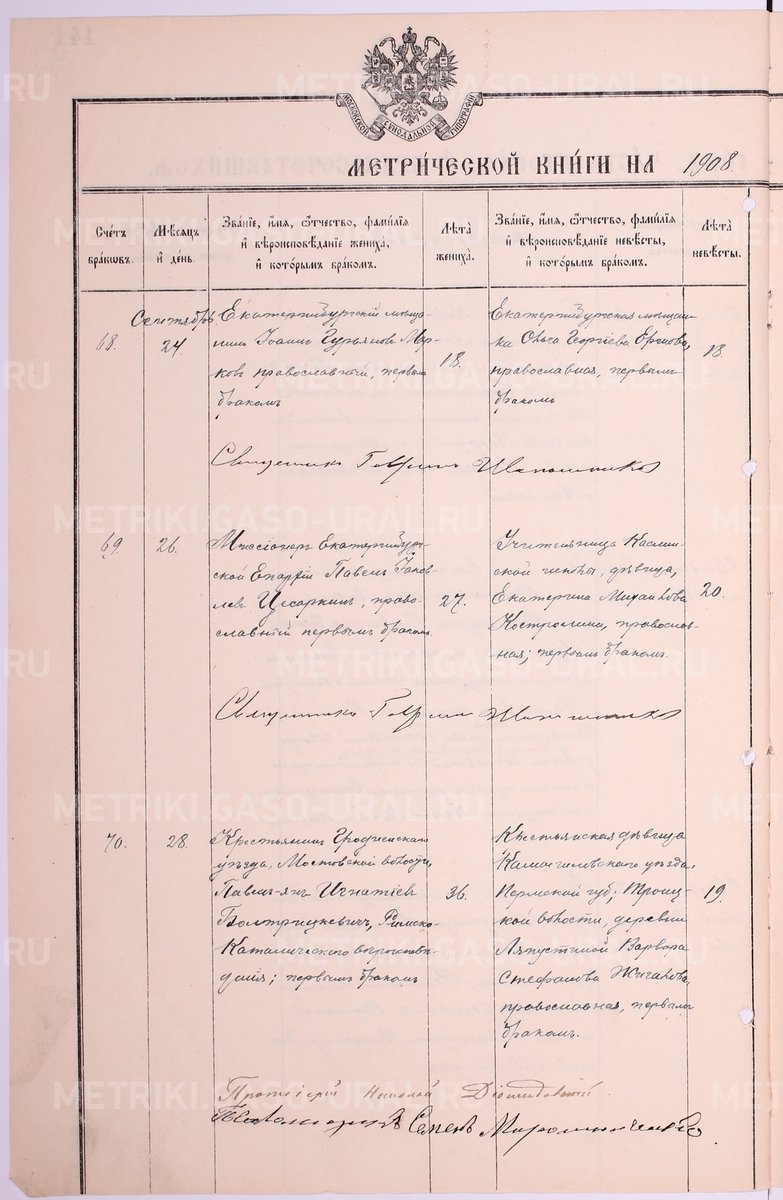 МОСКОВСКОЙ СѴНОДАЛЬНОЙ ТИПОГРАФІИ
МЕТРИ́ЧЕСКОЙ КНИ́ГИ НА 1908.
Сче́тъ бра́кѡвъ.
Мѣ́сяцъ и҆ де́нь.
Зва́нїе, и҆́мя, ѻ҆́тчество, фами́лїя и҆ вѣроисповѣ́данїе жениха̀, и҆ кото́рымъ бра́комъ.
Лѣ́та жениха̀.
Зва́нїе, и҆́мя, ѻ҆́тчество, фами́лїя и҆ вѣроисповѣ́данїе невѣ́сты, и҆ кото́рымъ бра́комъ.
Лѣ́та невѣ́сты.
68.
Сентябрь
24
Екатеринбургскій мѣща-
нинъ Іоаннъ Гурьяновъ Мар-
ковъ православный, первымъ
бракомъ
18.
Екатеринбургская мѣщан-
ка Ольга Георгіева
православная, первымъ
бракомъ
18.
Священникъ Гавриилъ Шапошниковъ
69.
26.
Миссіонеръ Екатеринбург-
ской Епархіи Павелъ Іаков-
левъ Цесаркинъ, право-
славный первымъ бракомъ.
27.
Учительница Каслин-
ской школы, дѣвица,
Екатерина Михаилова
Костромина, православ-
ная; первымъ бракомъ.
20.
Священникъ Гавриилъ Шапошниковъ
70.
28.
Крестьянинъ Гродненскаго
уѣзда, Мостовской волости,
Павелъ-янъ Игнатіевъ
Болтрицкевичъ, Римско-
Католическаго вѣроисповѣ-
данія; первымъ бракомъ
36.
Крестьянская дѣвица
Камышловскаго уѣзда,
Пермской губ; Троиц-
кой волости, деревни
Ляпустиной Варвара
Стефанова Жиганова,
православная, первымъ
бракомъ.
19.
Протоіерей Николай Діомидовскій
Псаломщикъ Семенъ
METRIKI.GASO-URAL.RU